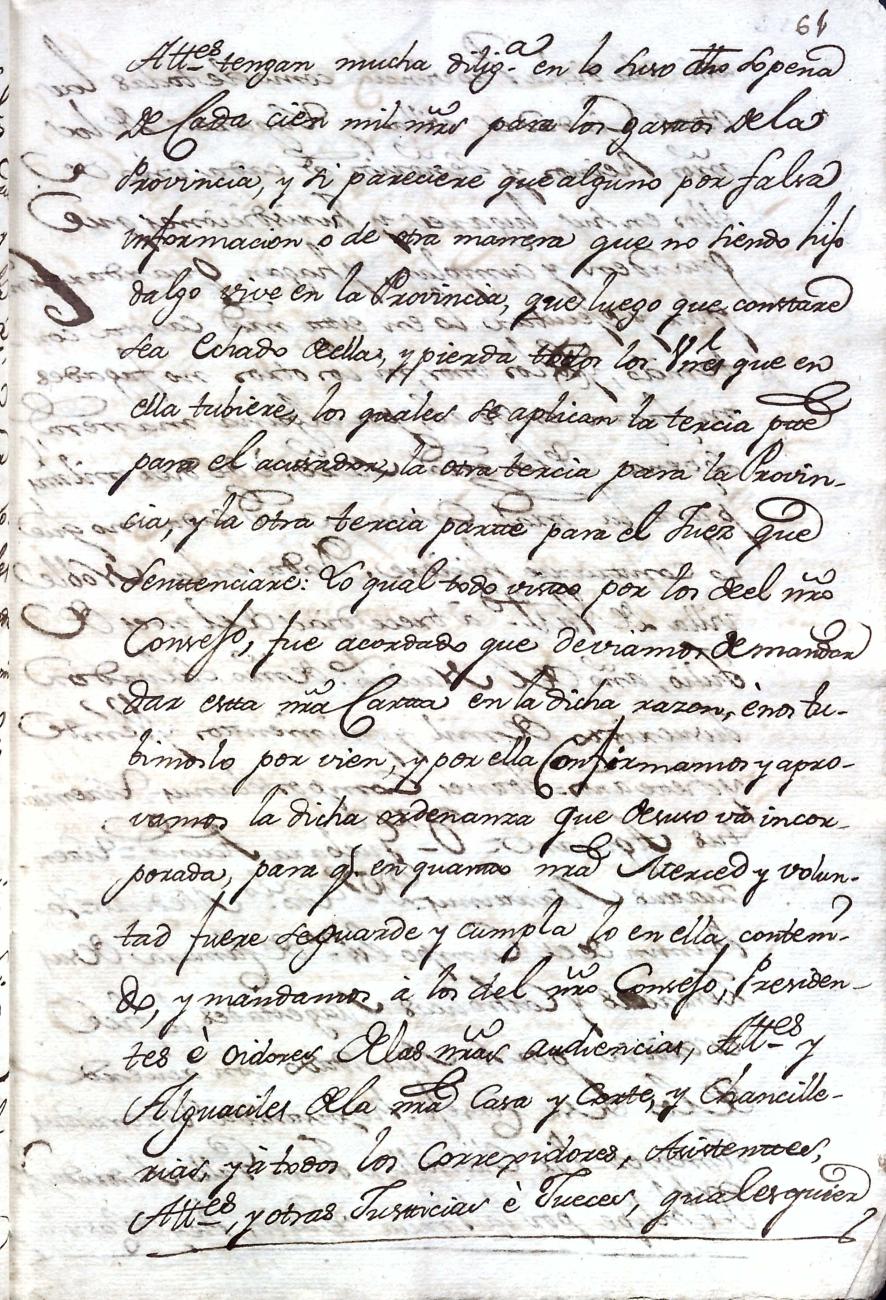 61
Alltes tengan mucha diliga en lo suso dho sopena
de Cada cien mil mrs para los gastos de la
Provincia, y si pareciere que alguno por falsa
informacion o de otra manera que no siendo hijo
dalgo vive en la Provincia, que luego que constare
sea echado de ella, y pierda todos los Vnes que en
ella tubiere, los quales se aplican la tercia pate
para el acusador, la otra tercia para la Provin-
cia, y la otra tercia partte para el Juez que
senttenciare: Lo qual todo visto por los de el nro
Consejo, fue acordado que deviamos de mandar
dar estta nra Cartta en la dicha razon, è nos tu-
bimoslo por vien, y por ella Confirmamos y apro-
vamos la dicha ordenanza que desuso và incor-
porada, para q. en quanto nra Merced y volun-
tad fuere se guarde y cumpla lo en ella conteni-
do, y mandamos à los del nro Consejo, Presiden-
tes è oidores de las nras audiencias, Alltes y
Alguaciles de la nra Casa y Corte, y Chancille-
rias, y à todos los Correxidores, Asistenttes,
Alltes, y otras Justicias è Jueces, qualesquier